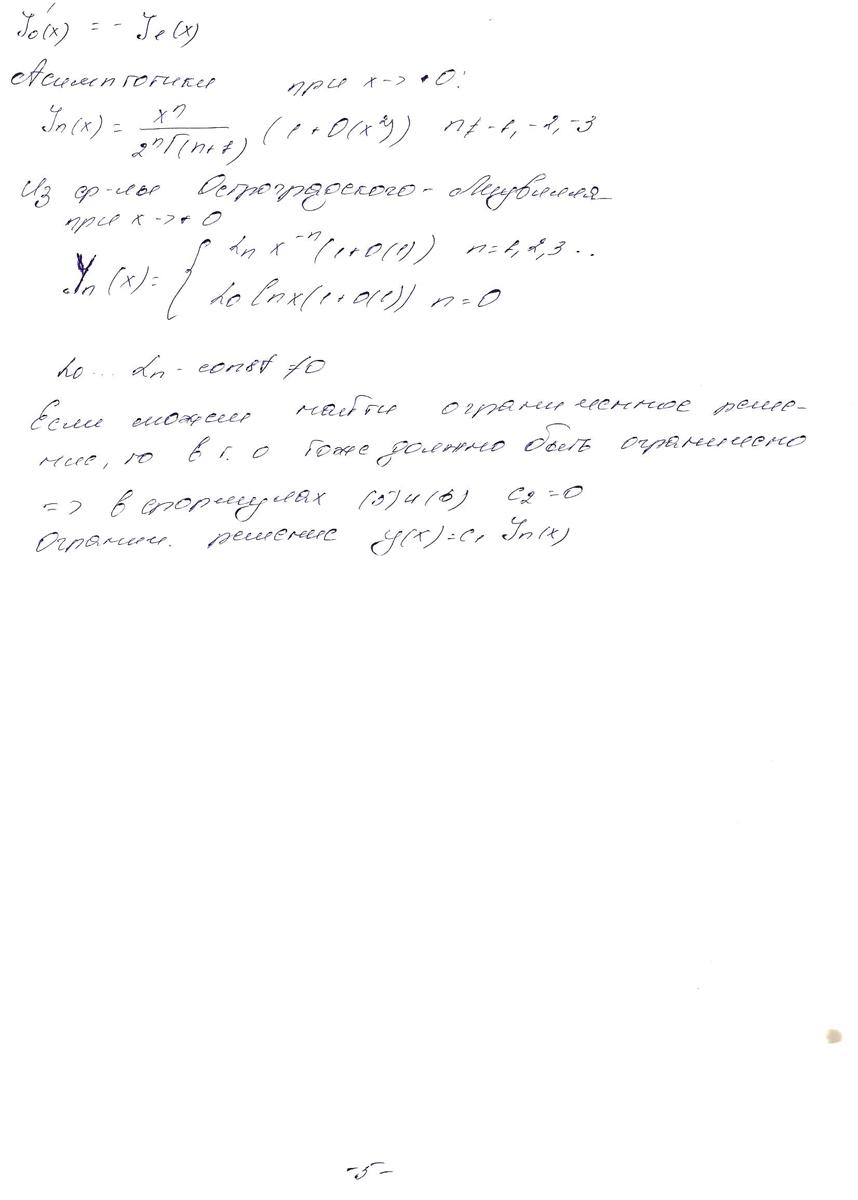 J₀'(x) = - J₁(x)
Асимптотики при x -> +0:
Jn(x) = xⁿ / 2ⁿГ(n+1) (1 + O(x²)) n ≠ -1, -2, -3
Из ф-лы Остроградского - Лиувилля
при x -> + 0
Yn(x) = { αn x⁻ⁿ (1+O(1)) n=1,2,3 ..
α₀ ln x (1+O(1)) n=0
α₀ ... αn - const ≠ 0
Если можем найти ограниченное реше-
ние, то в т. 0 тоже должно быть ограничено
=> в формулах (5) и (6) c₂ = 0
Огранич. решение y(x) = c₁ Jn(x)
-5-